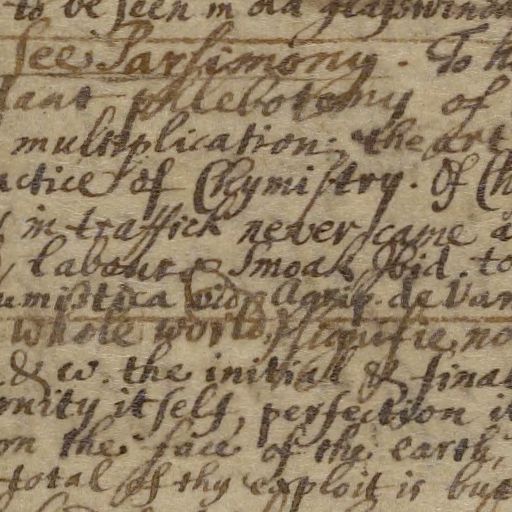 to be seen in old glasswindo
see Parsimony. To h
lant phlebotomy of
multiplication: the art
actice of Chymistry. Of Ch
in traffick never came a
labour & Smoak Ibid. to
umistica vide Agrip. de Van
whole world, signifie no
& w. the initial & final
rnity itself, perfection it
on the face of the earth,
total of thy exploit is but